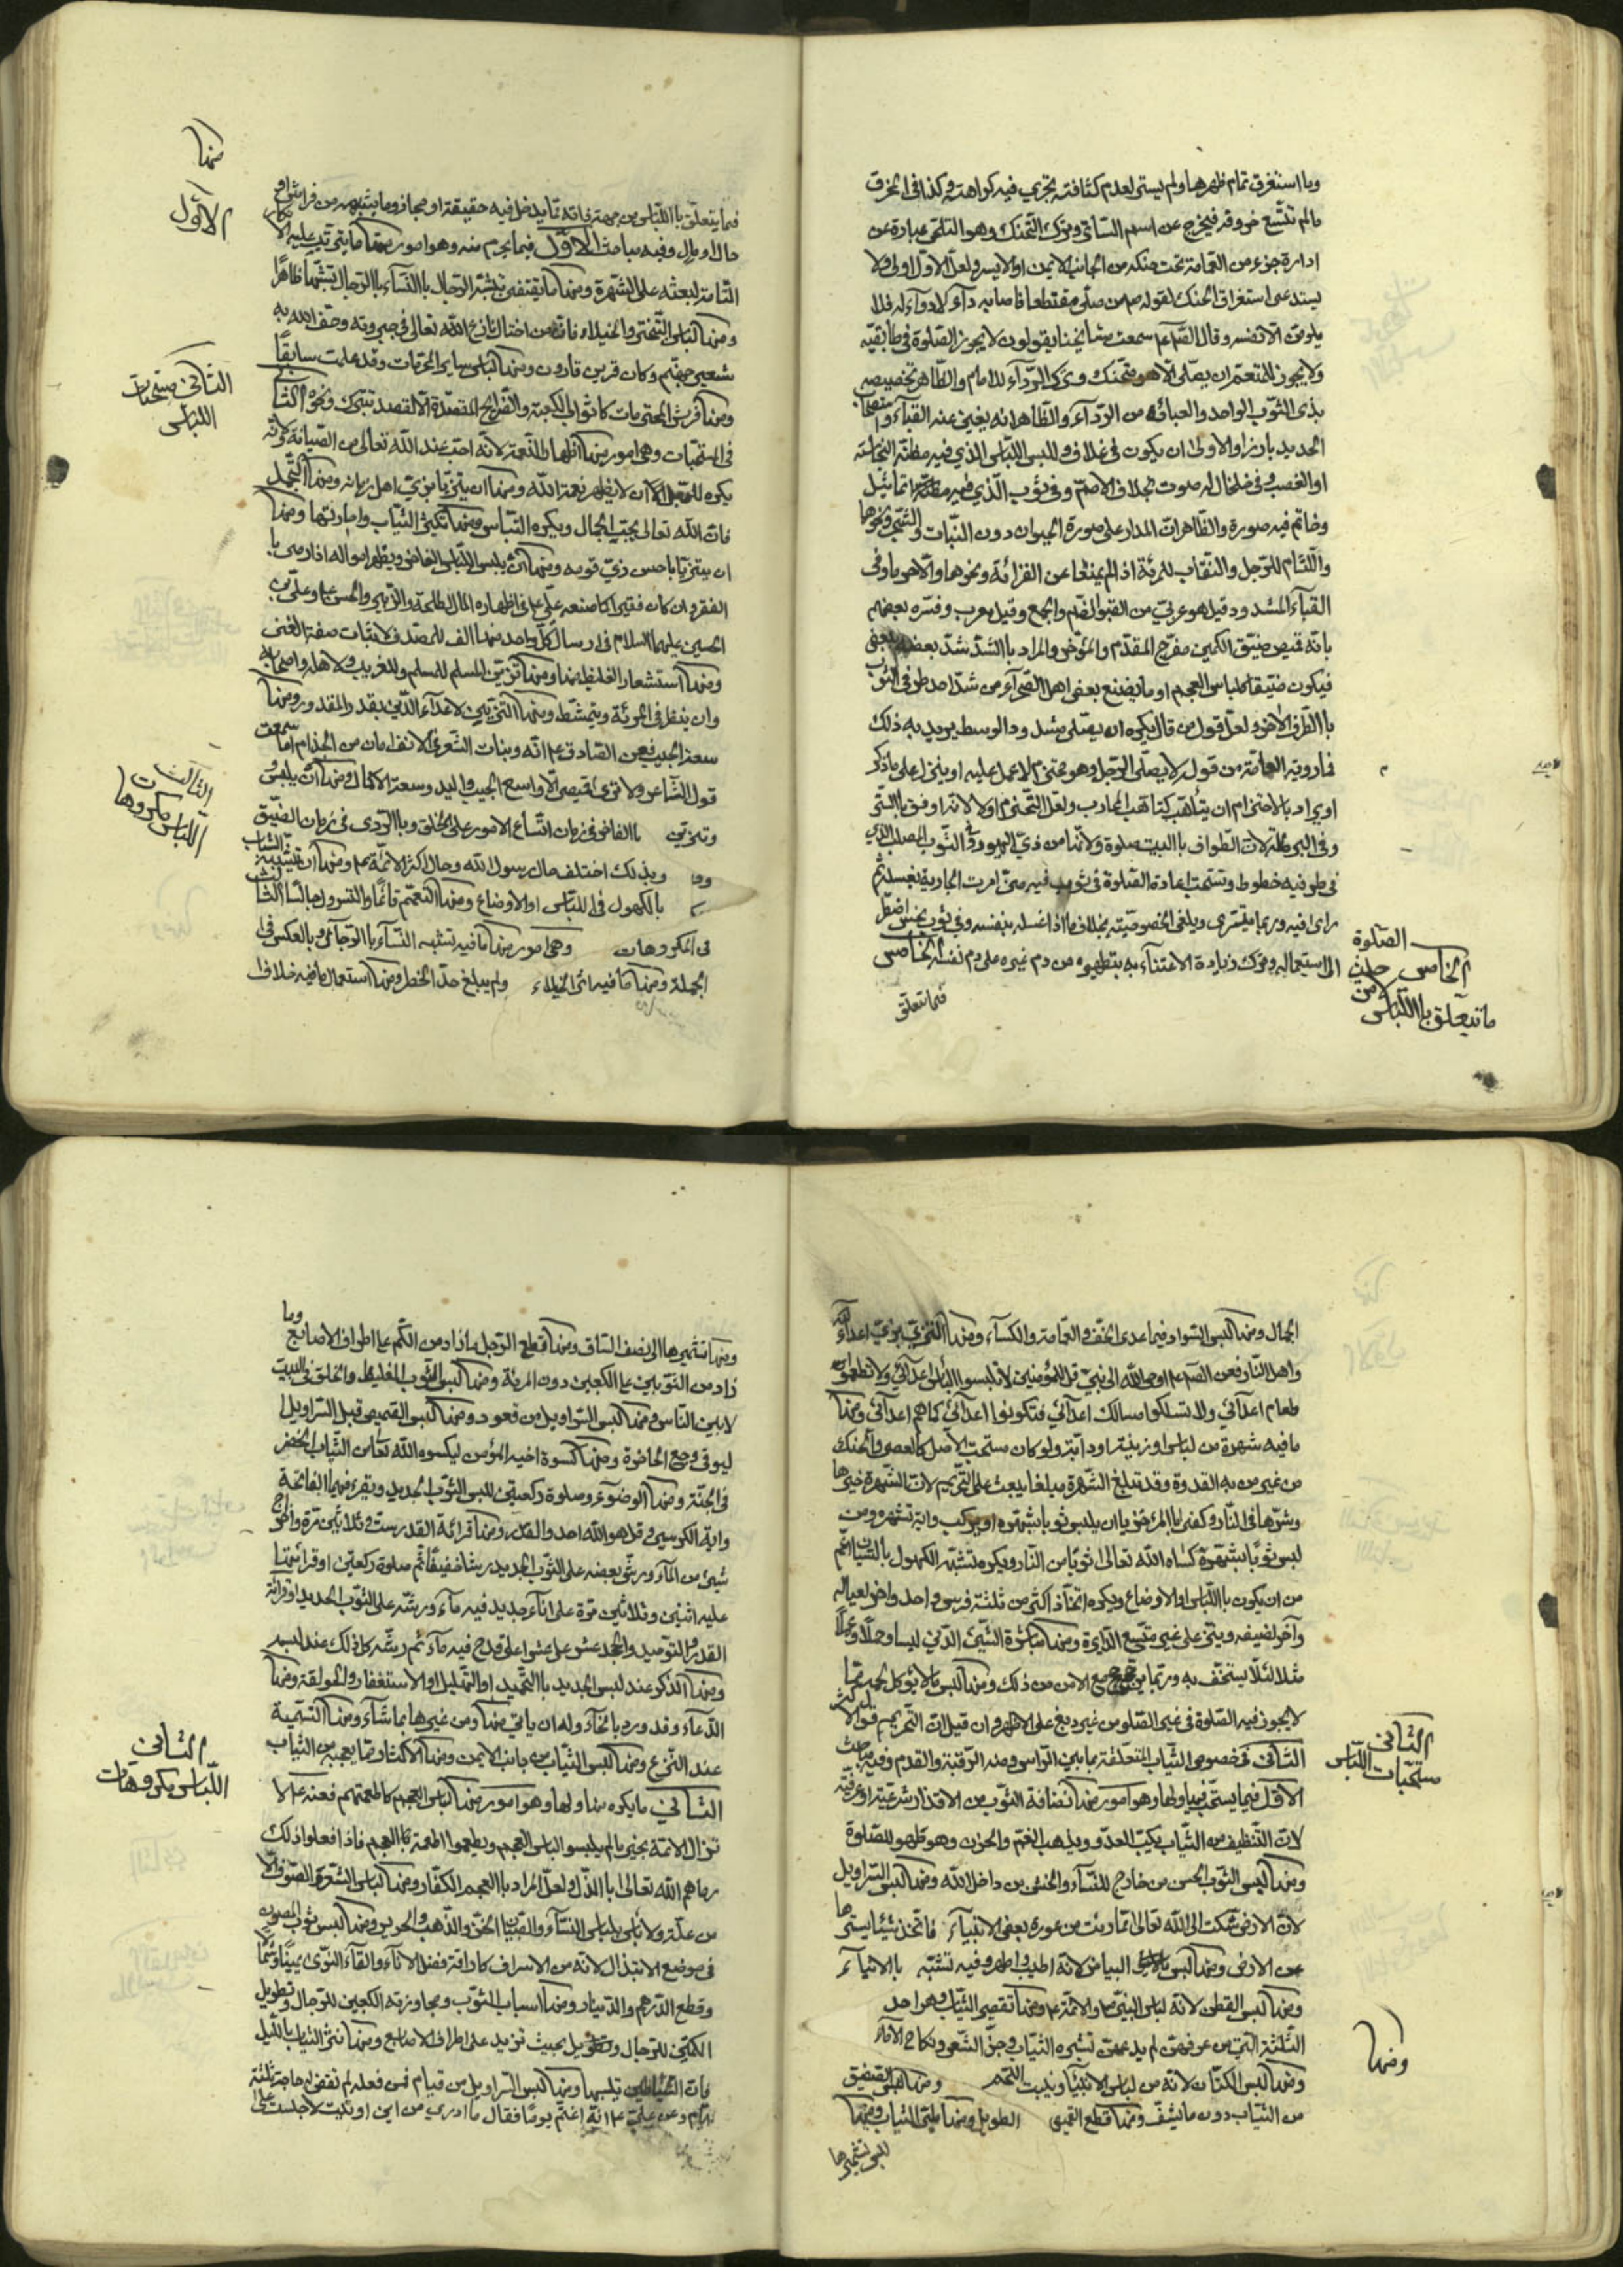 وما استغرق تمام ظهرها ولم يستر لعدم كثافته يجري فيه كراهته وكذا في الخرق
مالم تتسع خروقه فيخرج عن اسم الساتر وترك التحنك وهو التلحي عبارة عن
ادارة جزء من العمامة تحت حنكه من الجانب الايمن او الايسر ولعل الاول اولى ولا
يستدعي استغراق الحنك لقوله من صلى مقتطعا فاصابه داء لا دواء له فلا
يلومن الا نفسه وقال سمعت مشايخنا يقولون لا يجوز الصلوة في طابقيه
ولا يجوز للمتعمم ان يصلي الا وهو متحنك وترك الرداء للامام والظاهر تخصيصه
بذي الثوب الواحد والعباءة من الرداء والظاهر انه يغني عنه القباء
الحديد بارزا والاولى ان يكون في غلاف ولبس اللباس الذي فيه مظنة النجاسة
او الغصب وفي خلخال له صوت بخلاف الاصم وفي ثوب الذي فيه تماثيل
وخاتم فيه صورة والظاهر ان المدار على صورة الحيوان دون النبات والشجر ونحوها
واللثام للرجل والنقاب للمرئة اذا لم يمنعا عن القرائة ونحوها والا حرما وفي
القباء المشدود قيل هو عربي من القبو الضم والجمع وقيل معرب وفسره بعضهم
بانه قميص ضيق الكمين مفرج المقدم والمؤخر والمراد باالشد شد بعضه
فيكون ضيقا كلباس العجم او ما يصنع بعض اهل الصحراء من شد احد طرفي الثوب
باالطرف الاخر ولعل قول من قال يكره ان يصلي مشدود الوسط يريد به ذلك
فما رويته العامة من قوله لا يصلي الرجل وهو محتزم لا عمل عليه او ينزل على ماذكر
او يراد بالاحتزام ان يتأهب كتاهب المحارب ولعل التحزم اولا لانه اوفق باالستر
وفي البرطلة لان الطواف باالبيت صلوة ولانها من زي اليهود وفي الثوب
في طرفيه خطوط وتستحب اعادة الصلوة في ثوب فيه مني امرت الجارية بغسله ثم
راى فيه وربما يتسرى ويلغى الخصوصية بخلاف ما اذا غسله بنفسه وفي ثوب نجس اضطر
الى استعماله وترك زيادة الاعتناء به بتطهيره من دم غيره على دم نفسه الخامس
فيما يتعلق
الصلوة
الخامس
من
ما يتعلق باللباس
فيما يتعلق باللباس من جهة ذاته مما يدخل فيه حقيقة او مجاز وما يشبهه من فراش او
حالا او مال وفيه مباحث الاول فيما يحرم منه وهو امور منها ما يترتب عليه
التامة لبعثه على الشهرة ومنها ما يقتضي تشبه الرجال باالنساء باالرجال تشبها ظاهرا
ومنها لباس التبختر والخيلاء فانه من اختال نازع الله تعالى في جبروته وخسف الله به
شفير جهنم وكان قرين قارون ومنها لباس ساير المحرمات وقد علمت سابقا
ومنها فرش المحترمات كاثواب الكعبة والضرايح المقدسة الا لقصد تبرك ونحوه الثاني
في المستحبات وهي امور منها اظهار النعمة لانه احب عند الله تعالى من الصيانة
يكره للعبد ان لا يظهر نعمة الله ومنها ان يتزيا بزي اهل زمانه ومنها التجمل
فان الله تعالى يحب الجمال ويكره التباس ومنها تكثير الثياب واجادتها ومنها
ان يتزيا باحسن زي قومه ومنها ان يلبس اللباس الفاخر ويظهر امواله اذا رمي با
الفقر وان كان فقيرا كما صنعه علي في اظهاره المال لطلحة والزبير والحسن وعلي بن
الحسين عليهما السلام في ارسال كل واحد منهما الف للمصدق لاثبات صفة الغنى
ومنها استشعار الغليظ ومنها تزين المسلم للمسلم وللغريب ولاهله واصحابه
وان ينظر في المرئة ويتمشط ومنها التزيين لاعداء الدين بقدر المقدور ومنها
سعة الجيب فعن الصادق انه ونبات الشعر في الانف امان من الجذام اما سمعت
قول الشاعر ولا ترى قميصي الا واسع الجيب واليد وسعة الاكمال ومنها ان يلبس
ويتزين باالفاخر في زمان اتساع الامور على الخلق وباالردي في زمان الضيق
وبذلك اختلف حال رسول الله وحال اكثر الائمة ومنها ان تشبه الشباب
بالكهول في اللباس او الاوضاع ومنها التعمم قائما والتسرول جالسا الثالث
في المكروهات وهي امور منها ما فيه تشبه النساء باالرجال وبالعكس في
الجملة ومنها ما فيه اثر الخيلاء ولم يبلغ حد الحظر ومنها استعمال ما فيه خلاف
منها
الاول
الثاني مستحبات
اللباس
الثالث
اللباس مكروهات
الجمال ومنها لبس السواد فيما عدى الخف والعمامة والكساء ومنها التزي بزي اعداء الله
واهل النار فعن اوحى الله الى نبي قل للمؤمنين لا تلبسوا لباس اعدائي ولا تطعموا
طعام اعدائي ولا تسلكوا مسالك اعدائي فتكونوا اعدائي كما هم اعدائي ومنها
ما فيه شهرة من لباس او زينة او دابة ولو كان مستحب الاصل كالعصا والحنك
من غير من به القدوة وقد تبلغ الشهرة مبلغا يبعث على التحريم لان الشهرة خيرها
وشرها في النار وكفى باالمرء خزيا ان يلبس ثوبا يشهره او يركب دابة تشهره ومن
لبس ثوبا يشهره كساه الله تعالى ثوبا من النار ويكره تشبه الكهول بالشبان اعم
من ان يكون باللباس او الاوضاع ويكره اتخاذ اكثر من ثلثة فرش واحد واخر لعياله
واخر لضيفه ويبنى على غير متسع الدايرة ومنها مباشرة الشيئ الدني لبسا وحملا
مثلا لئلا يستخف به وربما جمع الامن من ذلك ومنها لبس ما لا يؤكل لحمه مما
لا يجوز فيه الصلوة في غير الصلوة من غير دبغ على الاظهر وان قيل ان التحريم قول الاكثر
الثاني في خصوص الثياب المتعلقة بما بين الراس ومنه الرقبة والقدم وفيه مباحث
الاول فيما يستحب فيها ولها وهو امور منها نضافة الثوب من الاقذار شرعية او عرفية
لان التنظيف من الثياب يكبت العدو ويذهب الغم والحزن وهو طهور للصلوة
ومنها لبس الثوب الحسن من خارج للنساء والخشن من داخل الله ومنها لبس السراويل
لان الارض شكت الى الله تعالى مما رئت من عورة بعض الانبياء فاتخذ شيئا يسترها
عن الارض ومنها لبس البياض لانه اطيب واطهر وفيه تشبه باالانبياء
ومنها لبس القطن لانه لباس النبي والائمة ومنها تقصير الثياب وهو احد
الثلثة التي من عرفهن لم يدعهن تشمير الثياب وجز الشعر ونكاح الاماء
ومنها لبس الكتان لانه من لباس الانبياء وينبت اللحم ومنها لبس الصفيق
من الثياب دون ما يشف ومنها قطع القميص الطويل ومنها طي الثياب ومنها
تشميرها
الثاني
مستحبات اللباس
ومنها
وما
ومنها تشميرها الى نصف الساق ومنها قطع الرجل ما زاد من الكم على اطراف الاصابع
زاد من الثوبين على الكعبين دون المرئة ومنها لبس الثوب الغليظ والخلق في البيت
لا بين الناس ومنها لبس السراويل من قعود ومنها لبس القميص قبل السراويل
ليوقى وجع الخاصرة ومنها كسوة اخيه المؤمن ليكسوه الله تعالى من الثياب الخضر
في الجنة ومنها الوضوء وصلوة ركعتين للبس الثوب الجديد ويقرء فيهما الفاتحة
واية الكرسي وقل هو الله احد والقدر ومنها قرائة القدر ست وثلاثين مرة واخراج
شيئ من الماء ورش بعضه على الثوب الجديد رشا خفيفا ثم صلوة ركعتين او قرائتها
عليه اثنين وثلاثين مرة على اناء جديد فيه ماء ورشه على الثوب الجديد او قرائة
القدر والتوحيد والجحد عشرا عشرا على قدح فيه ماء ثم رشه كل ذلك عند لبسه
ومنها الذكر عند لبس الجديد باالتحميد او التهليل او الاستغفار والحولقة ومنها
الدعاء وقد ورد بانحاء وله ان ياتي منها ومن غيرها بما شاء ومنها التسمية
عند النزع ومنها لبس الثياب من جانب الايمن ومنها الاكثار مما يعجبه من الثياب
الثاني ما يكره منها ولها وهو امور منها لباس العجم كاطعمتهم فعنه لا
تزال الامة بخير ما لم يلبسوا لباس العجم ويطعموا اطعمة العجم فاذا فعلوا ذلك
رماهم الله تعالى باالذل ولعل المراد باالعجم الكفار ومنها لباس الشعر والصوف الا
من علة ولا باس بلباس النساء والصبيان الخز والذهب والحرير ومنها لبس ثوب الصون
في موضع الابتذال لانه من الاسراف كاراقة فضل الاناء والقاء النوى يمينا وشمالا
وقطع الدرهم والدينار ومنها اسباب الثوب ومجاوزته الكعبين للرجال وتطويل
الكمين للرجال وتطويل بحيث تزيد على اطراف الاصابع ومنها نشر الثياب بالليل
فان الشياطين تلبسها ومنها لبس السراويل من قيام فمن فعله لم تقض له حاجة ثلثة
ايام وعن علي انه اغتم يوما فقال ما ادري من اين اوتيت لا جلست على
الثاني
اللباس مكروهات